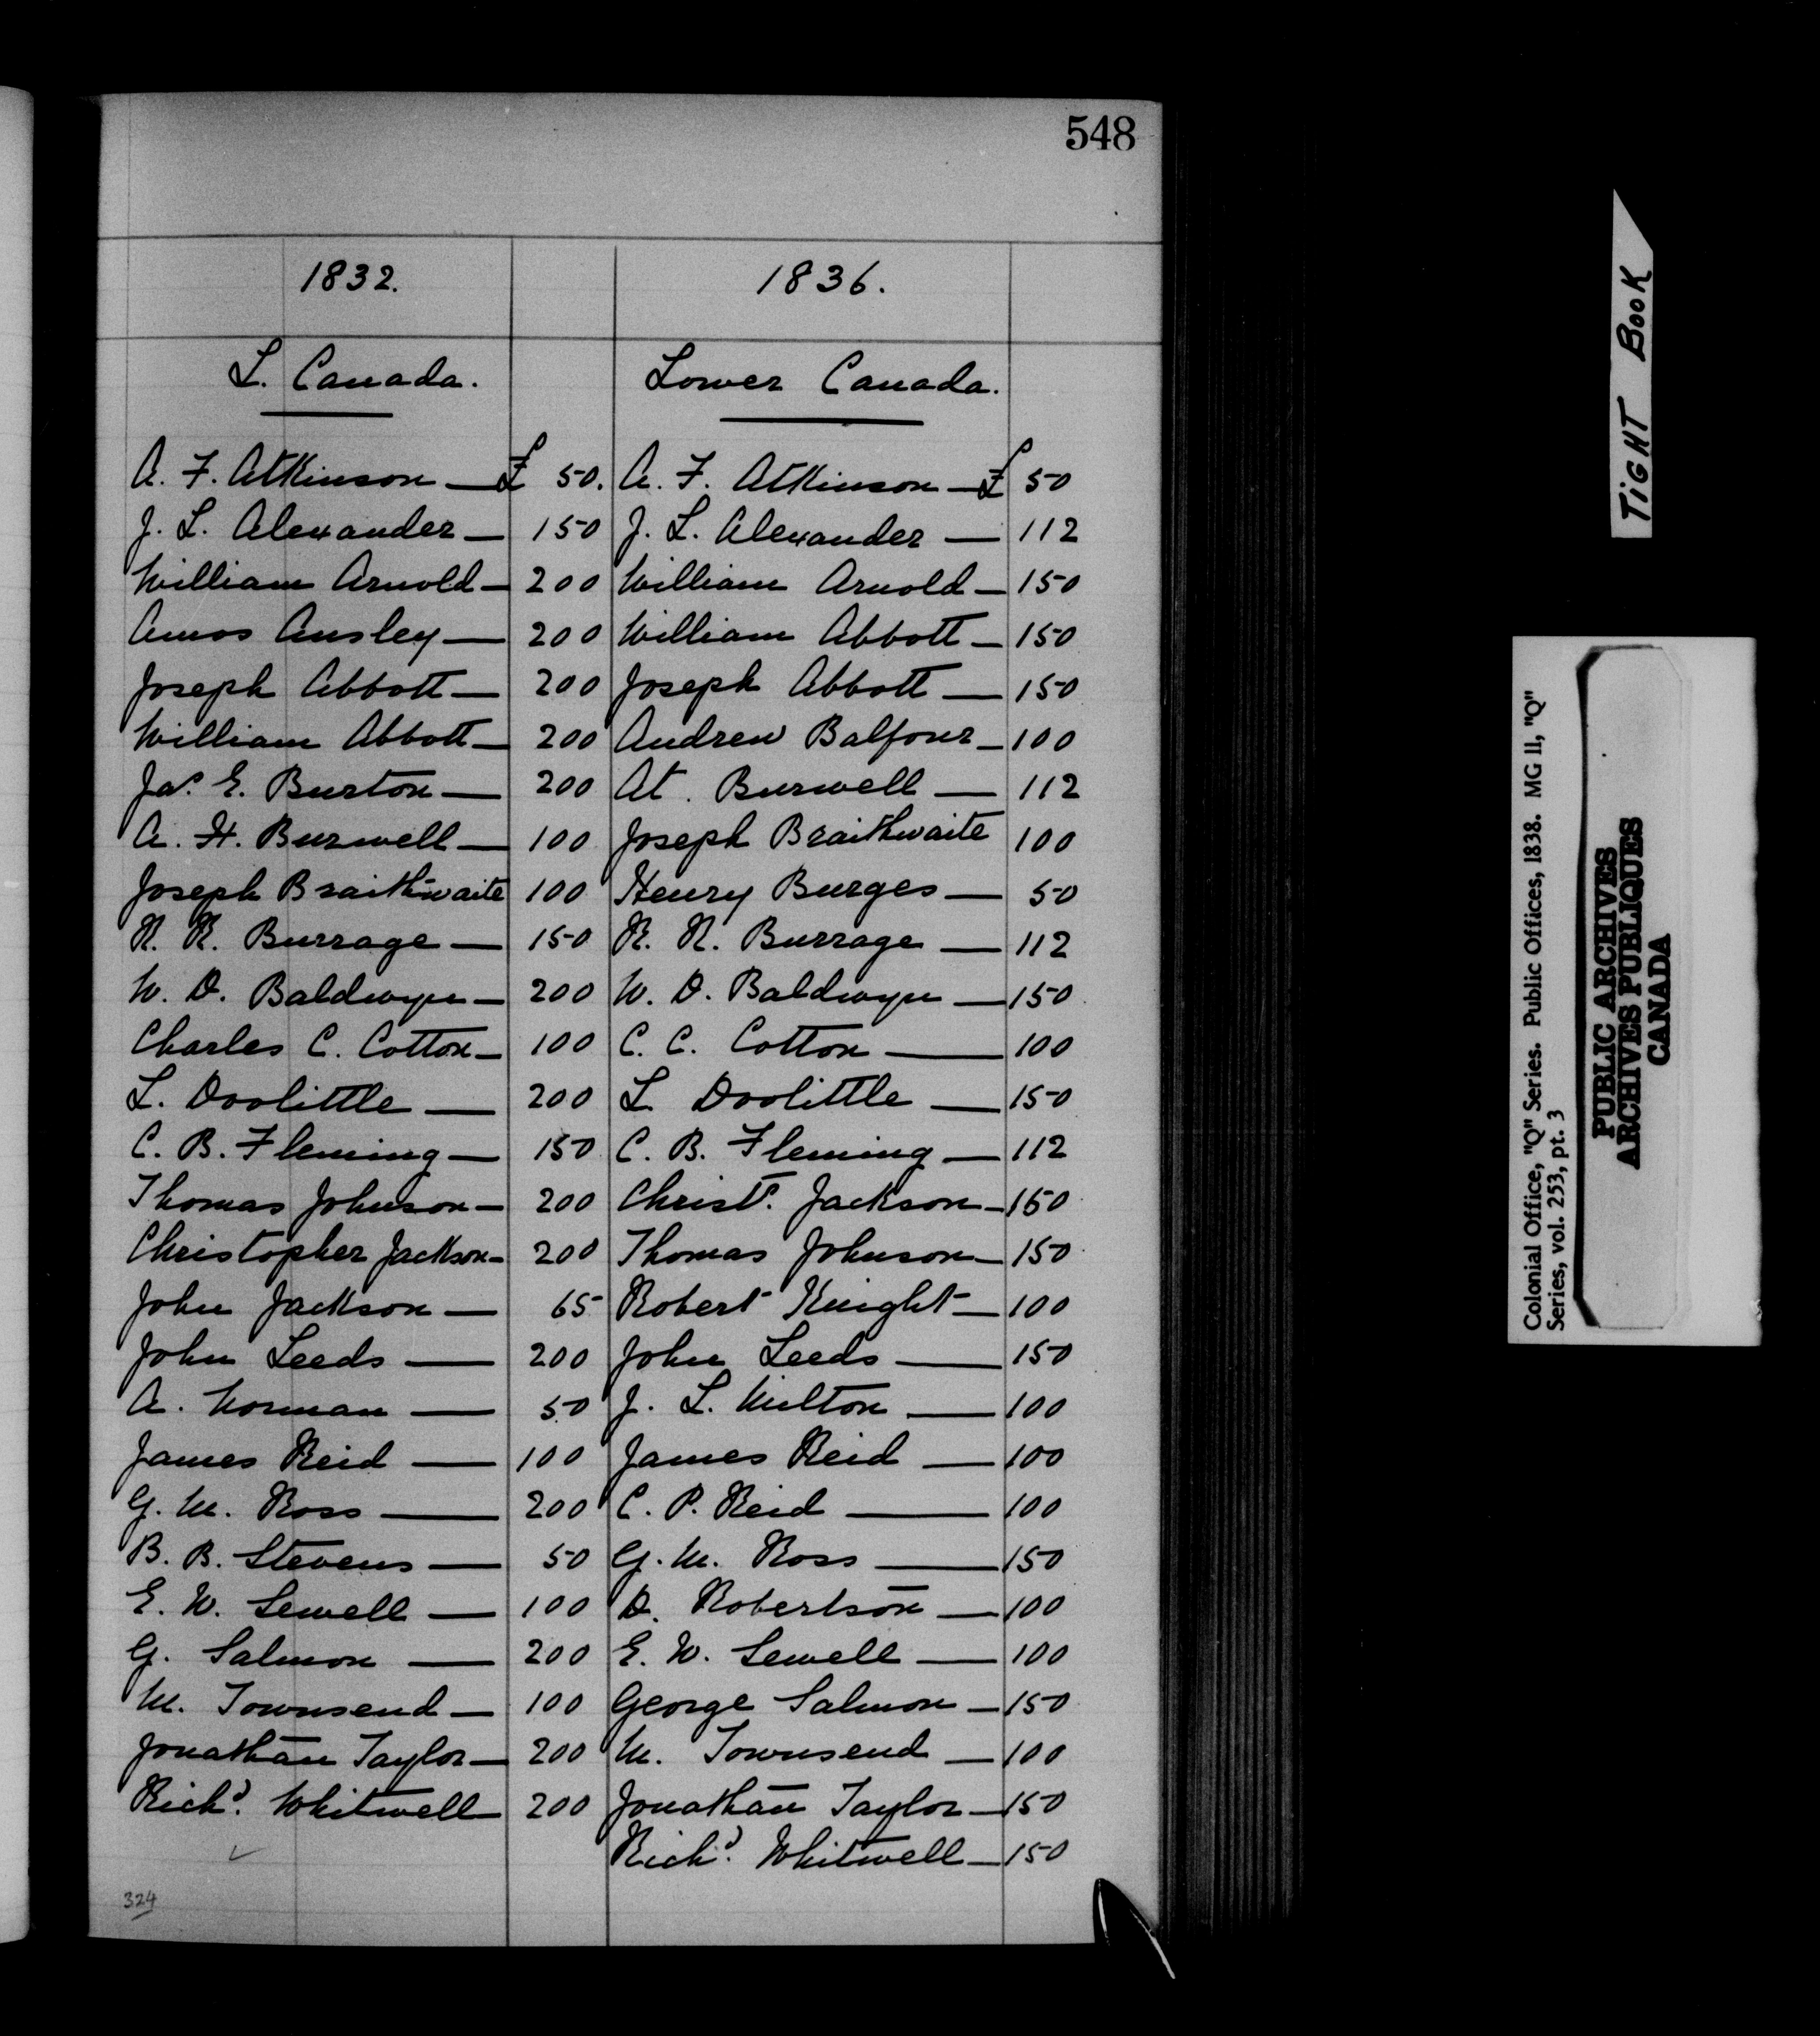 548
1832. 1836.
L. Canada. Lower Canada.
A. F. Atkinson — £ 50. A. F. Atkinson — £ 50
J. L. Alexander — 150 J. L. Alexander — 112
William Arnold — 200 William Arnold — 150
Amos Ansley — 200 William Abbott — 150
Joseph Abbott — 200 Joseph Abbott — 150
William Abbott — 200 Andrew Balfour — 100
Jas. E. Burton — 200 At. Burwell — 112
A. H. Burwell — 100 Joseph Braithwaite 100
Joseph Braithwaite 100 Henry Burges — 50
R. R. Burrage — 150 R. R. Burrage — 112
W. D. Baldwyn — 200 W. D. Baldwyn — 150
Charles C. Cotton — 100 C. C. Cotton — 100
L. Doolittle — 200 L. Doolittle — 150
C. B. Fleming — 150 C. B. Fleming — 112
Thomas Johnson — 200 Christr. Jackson — 150
Christopher Jackson — 200 Thomas Johnson — 150
John Jackson — 65 Robert Knight — 100
John Leeds — 200 John Leeds — 150
A. Norman — 50 J. L. Milton — 100
James Reid — 100 James Reid — 100
G. M. Ross — 200 C. P. Reid — 100
B. B. Stevens — 50 G. M. Ross — 150
E. W. Sewell — 100 D. Robertson — 100
G. Salmon — 200 E. W. Sewell — 100
M. Townsend — 100 George Salmon — 150
Jonathan Taylor — 200 M. Townsend — 100
Richd. Whitwell 200 Jonathan Taylor — 150
Richd. Whitwell — 150
324
TIGHT BOOK
Colonial Office, "Q" Series. Public Offices, 1838. MG 11, "Q"
Series, vol. 253, pt. 3
PUBLIC ARCHIVES
ARCHIVES PUBLIQUES
CANADA